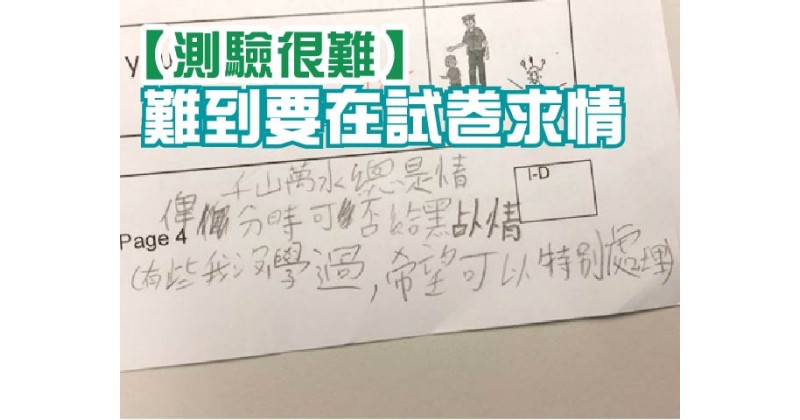 【測驗很難】
難到要在試卷求情
千山萬水總是情
I-D
俾分時可否給點情
Page 4
(有些我沒學過,希望可以特別處理)